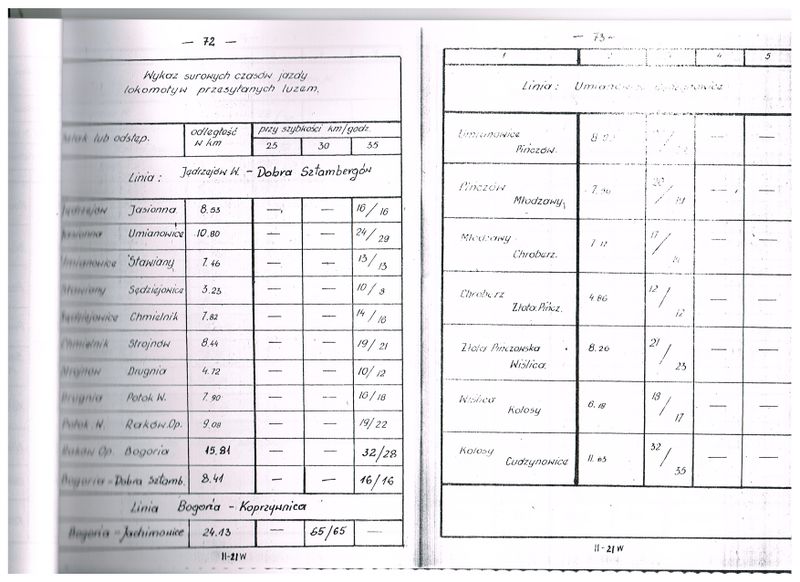 — 72 —
Wykaz surowych czasów jazdy
lokomotyw przesyłanych luzem.
lub odstęp. odległość w km przy szybkości km/godz.
25 30 35
Linia: Jędrzejów W. - Dobra Sztambergów
Jędrzejów Jasionna 8.53 — — 16/16
Jasionna Umianowice 10.80 — — 24/29
Umianowice Stawiany 7.46 — — 13/13
Stawiany Sędziejowice 3.23 — — 10/9
Sędziejowice Chmielnik 7.82 — — 14/16
Chmielnik Strojnów 8.44 — — 19/21
Strojnów Drugnia 4.72 — — 10/12
Drugnia Potok W. 7.90 — — 16/18
Potok W. Raków Op. 9.08 — — 19/22
Raków Op. Bogoria 15.81 — — 32/28
Bogoria - Dobra Sztamb. 8.41 — — 16/16
Linia Bogoria - Koprzywnica
Bogoria - Jachimowice 24.13 — 65/65 —
II-21W
— 73 —
1 2 3 4 5
Linia: Umianowice
Umianowice
Pińczów.
Pińczów 20/19 — —
Młodzawy
Młodzawy 17/ — —
Chroberz.
Chroberz 4.86 12/12 — —
Złota Pińcz.
Złota Pińczowska 8.26 21/23 — —
Wiślica
Wiślica 6.18 18/17 — —
Kolosy
Kolosy 11.63 32/35 — —
Cudzynowice
II-21W